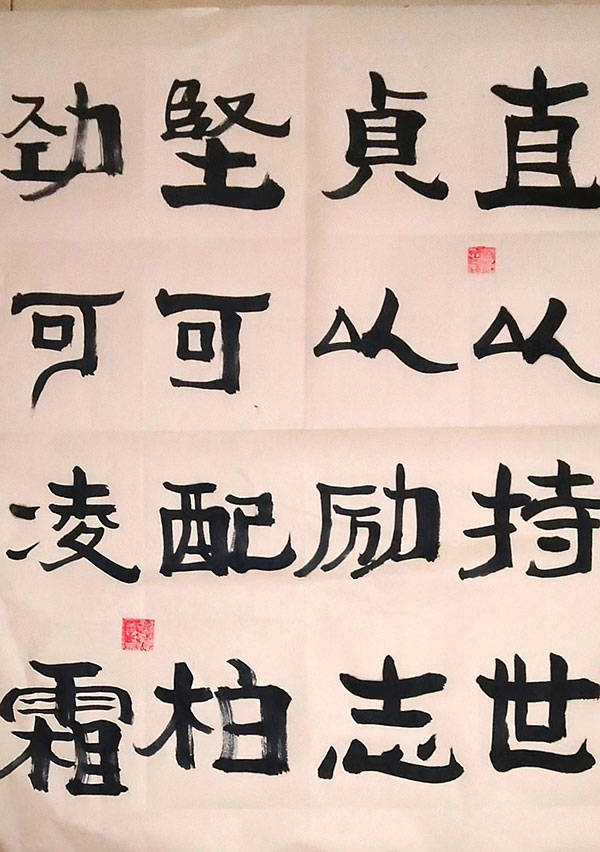 直以持世
貞以励志
堅可配柏
劲可凌霜